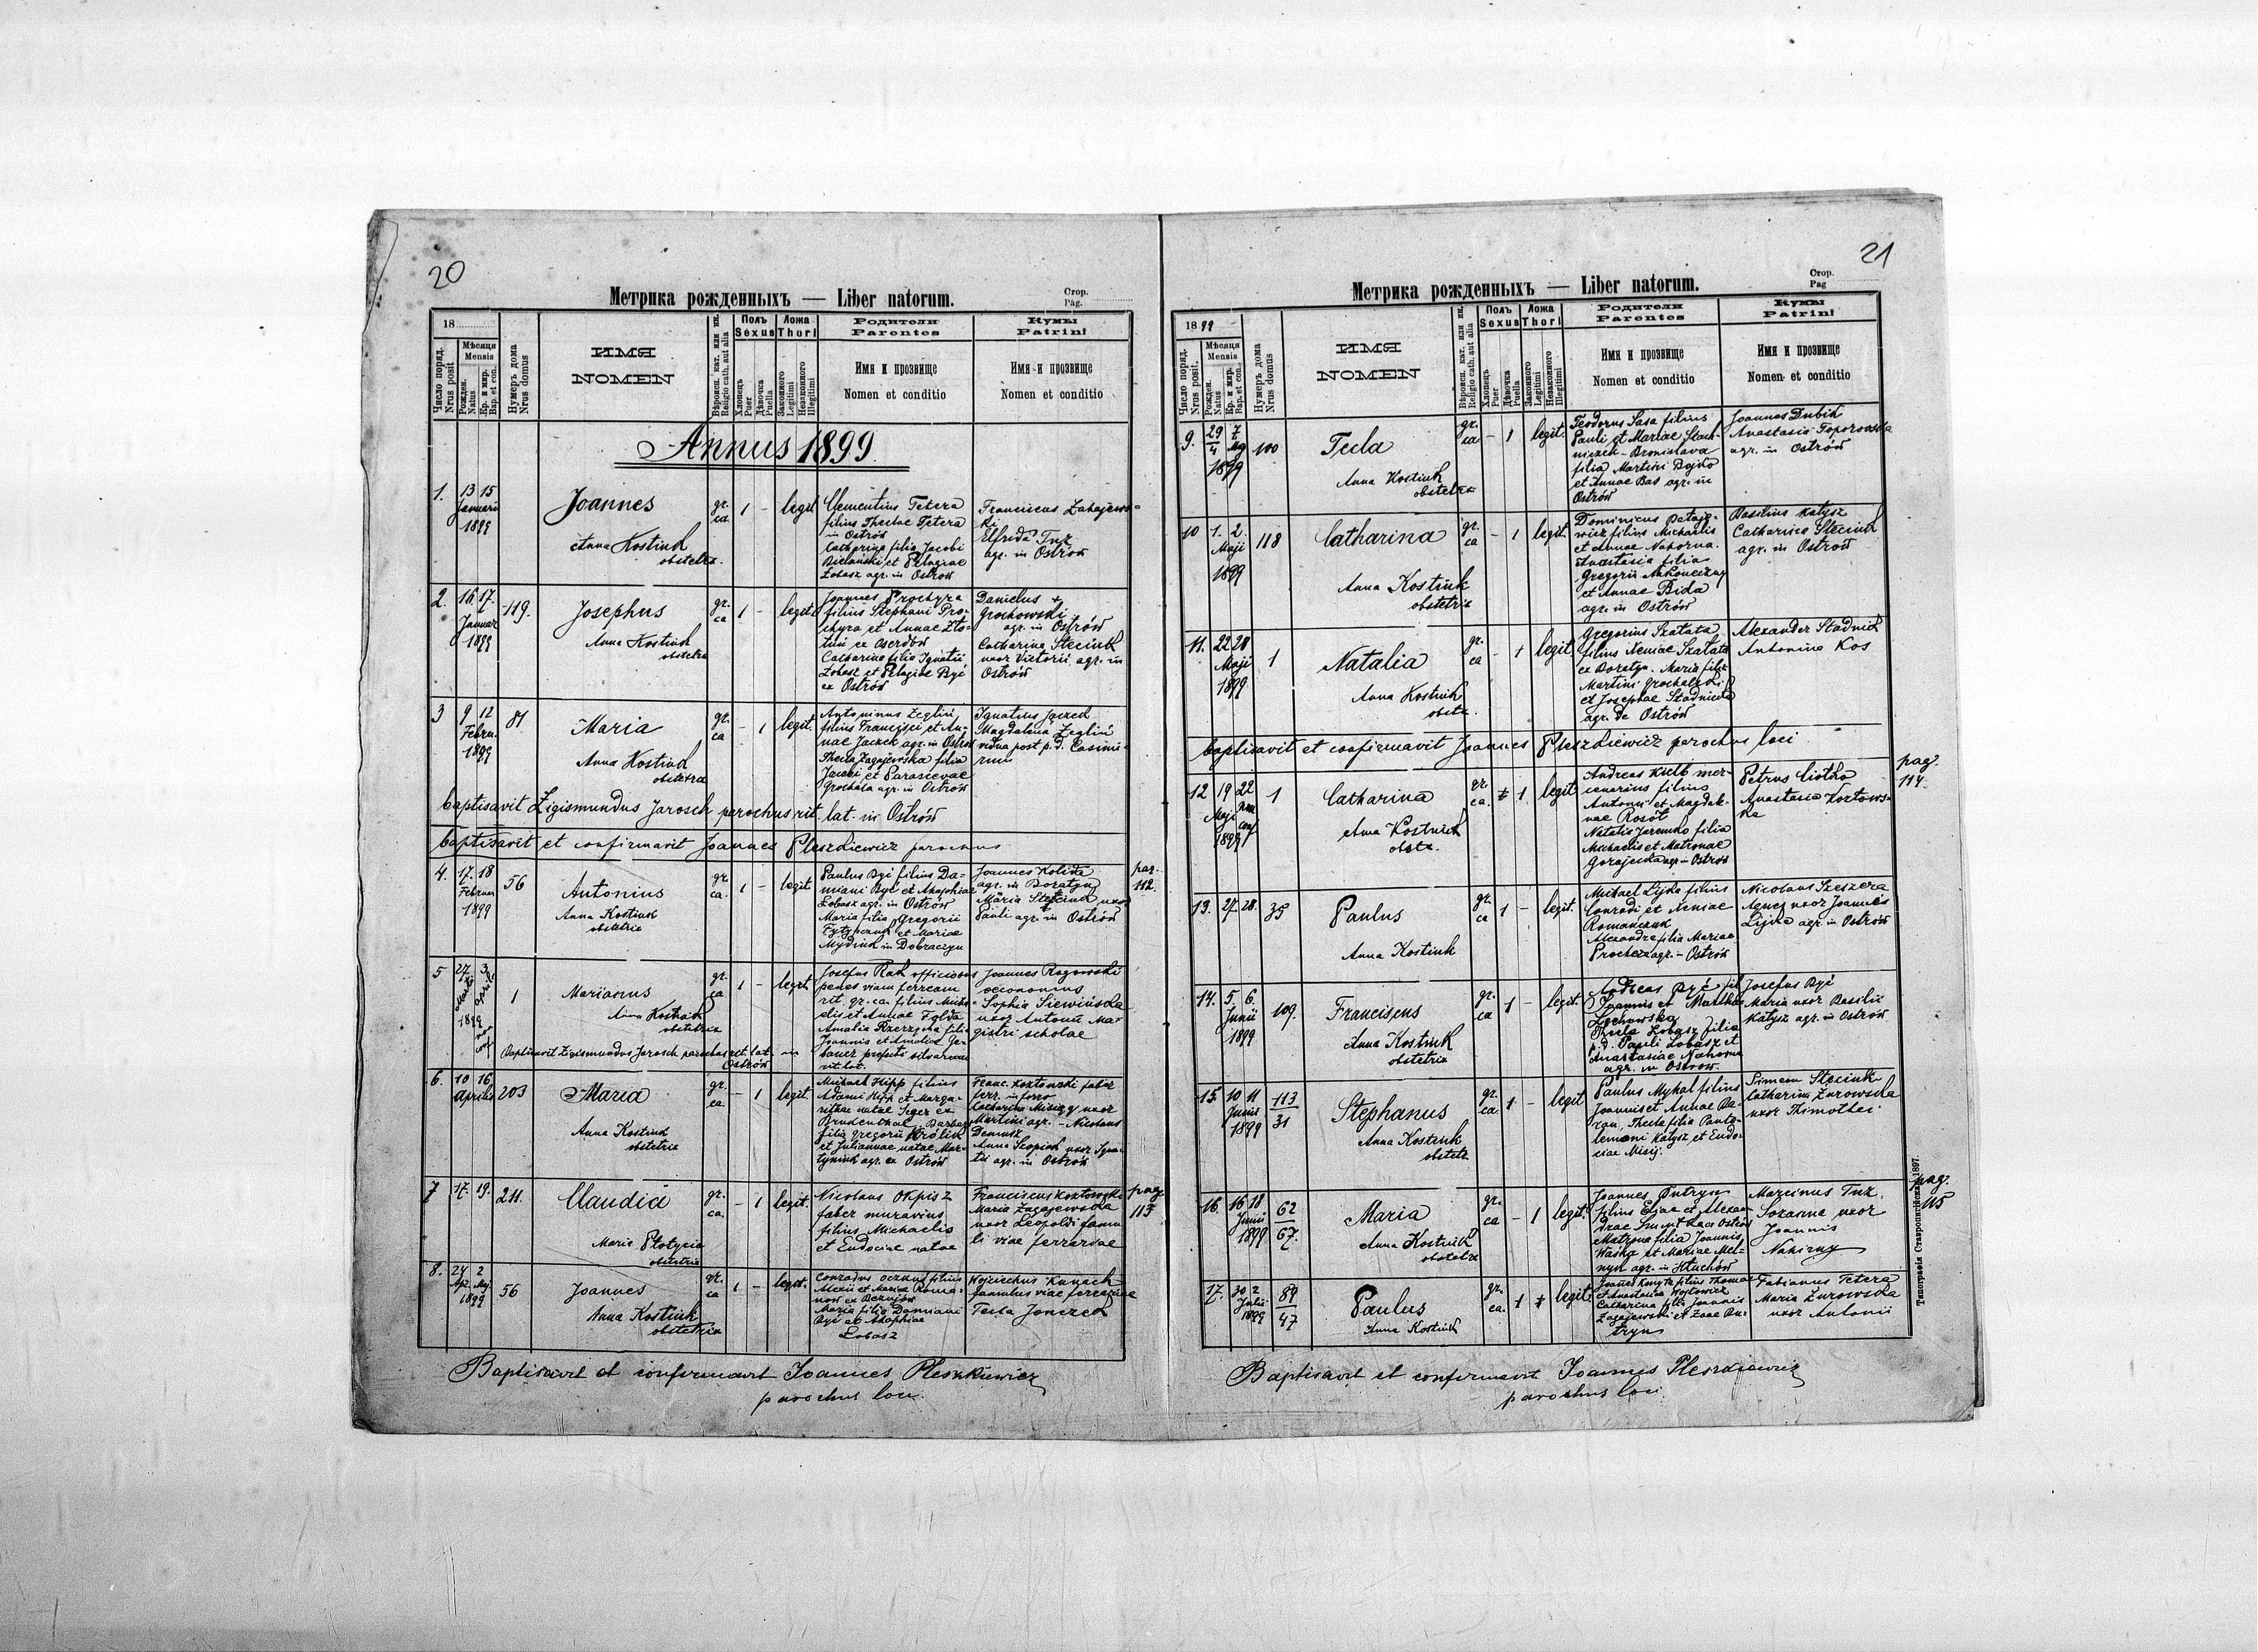 20
Метрика рожденныхъ — Liber natorum.
Стор.
Pag.
18
Число поряд.
Nrus posit
Мѣсяця
Mensis
Рожден.
Natus
Кр. и мир.
Bap. et con.
Нумеръ дома
Nrus domus
ИМЯ
NOMEN
Вѣроисп. кат. или ин.
Religio cath. aut alia
Полъ
Sexus
Хлопець
Puer
Дѣвочка
Puella
Ложа
Thori
Законного
Legitimi
Незаконного
Illegitimi
Родители
Parentes
Имя и прозвище
Nomen et conditio
Кумы
Patrini
Имя и прозвище
Nomen et conditio
Annus 1899
1. 13 15
Januarii
1899
Joannes
Anna Kostiuk
obstetrx.
gr.
ca
1 - legit
Clementius Tetera
filius Theclae Tetera
in Ostrów
Catharina filia Jacobi
Bielański et Pelagiae
Łobasz agr. in Ostrów
Franciscus Zahajews-
ki
Elfreda Tuz
agr. in Ostrów
2. 16. 17.
Januar
1899
119.
Josephus
Anna Kostiuk
obstetrx
gr.
ca
1 - legit.
Joannes Prochyra
filius Stephani Pro-
chyra et Annae
Catharina filia Ignatii
Łobasz et Pelagiae Być
ex Ostrów
Danielus +
Grochowski
agr. in Ostrów
Catharina Steciuk
uxor Victorii agr. in
Ostrów
3 9 12
Febru.
1899
81
Maria
Anna Kostiuk
obstetrx
gr.
ca
- 1 legit.
Antoninus Żeglin
filius Francisci et An-
nae Jaczek agr. in Ostrów
Thecla Zagajewska filia
Jacobi et Parascevae
Grochala agr. in Ostrów
Ignatius Jaczek
Magdalena Żeglin
vidua post p. d. Casimi-
rum
baptisavit Zigismundus Jarosch parochus rit. lat. in Ostrów
baptisavit et confirmavit Joannes Pleszkiewicz parochus
4. 17. 18
Februar
1899
56
Antonius
Anna Kostiuk
obstetrix
gr.
ca.
1 - legit
Paulus Być filius Da-
miani Być et Ahaphiae
Łobasz agr. in Ostrów
Maria filia Gregorii
et Mariae
in Dobraczyn
Joannes Kolida
agr. in Boratyn
Maria Steciuk uxor
Pauli agr. in Ostrów
pag.
112.
5 27. 3
Martii Aprilis
1899
1
Marianus
Anna Kostiuk
obstetrix
gr.
ca
1 - legit.
Josefus Rak officiosus
penes viam ferream
rit. gr. ca. filius Micha-
elis et Annae Fołda
Amalia filia
Joannis et Amaliae Ge-
bauer prefecti silvarum
rit. lat.
Joannes Rogowski
oeconomus
Sophia Siewińska
uxor Antonii Ma-
gistri scholae
Baptisavit Zigismundus Jarosch parochus rit. lat. in
Ostrów
6. 10 16
Aprilis
203
Maria
Anna Kostiuk
obstetrix
gr.
ca
- 1 legit.
Michael Hipp filius
Adami Hipp et Marga-
rithae natae Seger ex
Brunenthal, Barbara
filia Gregorii Królik
et Julianae natae Mar-
tyniuk agr. ex Ostrów
Franc. Kozłowski faber
ferr. in
Catharina uxor
Martini agr. - Nicolaus
Anna uxor Igna-
tii agr. in Ostrów
7 17. 19.
211.
Claudia
Maria
obstetrix
gr.
ca.
- 1 legit.
Nicolaus Okpisz
faber murarius
filius Michaelis
et Eudociae natae
Franciscus Kozłowski
Maria Zagajewska
uxor Leopoldi famu-
li viae ferrariae
pag.
113
8. 24 2
Apr. Maj
1899
56
Joannes
Anna Kostiuk
obstetrix
gr.
ca
1 - legit.
Conradus filius
Alexii et Mariae Roma-
now ex
Maria filia Damiani
Być et Ahaphiae
Łobasz
Wojciechus Kanach
famulus viae ferrariae
Tecla Jonczek
Baptisavit et confirmavit Joannes Pleszkiewicz
parochus loci.
21
Метрика рожденныхъ — Liber natorum.
Стор.
Pag
1899
Число поряд.
Nrus posit.
Мѣсяця
Mensis
Рожден.
Natus
Кр. и мир.
Bap. et con.
Нумеръ дома
Nrus domus
ИМЯ
NOMEN
Вѣроисп. кат. или ин.
Religio cath. aut alia
Полъ
Sexus
Хлопець
Puer
Дѣвочка
Puella
Ложа
Thori
Законного
Legitimi
Незаконного
Illegitimi
Родители
Parentes
Имя и прозвище
Nomen et conditio
Кумы
Patrini
Имя и прозвище
Nomen et conditio
9. 29 7
4 Maj
1899
100
Tecla
Anna Kostiuk
obstetrx
gr.
ca
- 1 legit.
Teodorus Sasa filius
Pauli et Mariae Stach-
niczek - Bronislava
filia Martini Bojko
et Annae Bas agr. in
Ostrów
Joannes Dubik
Anastasia Toporowska
agr. in Ostrów
10 1. 2.
Maji
1899
118
Catharina
Anna Kostiuk
obstetrix
gr.
ca
- 1 legit.
Dominicus
filius Michaelis
et Annae Nahorna.
Anastasia filia
Gregorii Nakoneczny
et Annae Bida
agr. in Ostrów
Basilius Katysz
Catharina Steciuk
agr. in Ostrów
11. 22 28
Maji
1899
1
Natalia
Anna Kostiuk
obstx.
gr.
ca
- 1 legit.
Gregorius Szałata
filius Xeniae Szałata
ex Boratyn. Maria filia
Martini Grochalski
et Josephae Stadnicka
agr. de Ostrów
Alexander Stadnik
Antonina Kos
baptisavit et confirmavit Joannes Pleszkiewicz parochus loci
12 19 22
Maji
1899
1
Catharina
Anna Kostiuk
obstx.
gr.
ca.
1 legit
Andreas Kiełb mer-
cenarius filius
Antonii et Magdale-
nae Rosół
Natalia Jaremko filia
Michaelis et Matronae
agr. in Ostrów
Petrus Ciołko
Anastasia Kozłows-
ka
pag.
114.
13. 27. 28.
35
Paulus
Anna Kostiuk
gr.
ca
1 - legit.
Michael Lijka filius
Conradi et Xeniae
Romanczuk
Alexandra filia Mariae
agr. - Ostrów
Nicolaus Szeszera
Agnes uxor Joannis
Lijka agr. in Ostrów
14. 5. 6.
Junii
1899
109.
Franciscus
Anna Kostiuk
obstetrix
gr.
ca
1 - legit.
Andreas Być fil.
Joannis et Marthae
Lechowska
Thecla Łobasz filia
p. d. Pauli Łobasz et
Anastasiae Nahorna
agr. in Ostrów.
Josefus Być
Maria uxor Basilii
Katysz agr. in Ostrów
15. 10 11
Junii
1899
113
31
Stephanus
Anna Kostiuk
obstetr.
gr.
ca.
1 - legit
Paulus Mykal filius
Joannis et Annae Ba-
ran, Thecla filia Panta-
lemoni Katysz et Eudo-
ciae Misij.
Simeon Steciuk
Catharina Żurowska
uxor Thimothei
16. 16 18
Junii
1899
62
67.
Maria
Anna Kostiuk
obstetrx
gr.
ca
- 1 legit.
Joannes Putryn
filius Eliae et Alexan-
drae ex Ostrów
Matrona filia Joannis
Waśko et Mariae Mel-
nyk agr. in Hłuchów
Marcinus Tuz,
Sozanna uxor
Joannis
Nahirny
pag.
115
17. 30 2
Julii
1899
89
47
Paulus
Anna Kostiuk
gr.
ca.
1 legit.
Joannes filius Thomae
et Anastasiae Wojtowicz
Catharina filia Joannis
Zagajewski et Evae Pu-
tryn
Fabianus Tetera
Maria Żurowska
uxor Antonii
Baptisavit et confirmavit Joannes Pleszkiewicz
parochus loci.
Типографія Ставропигійска 1897.